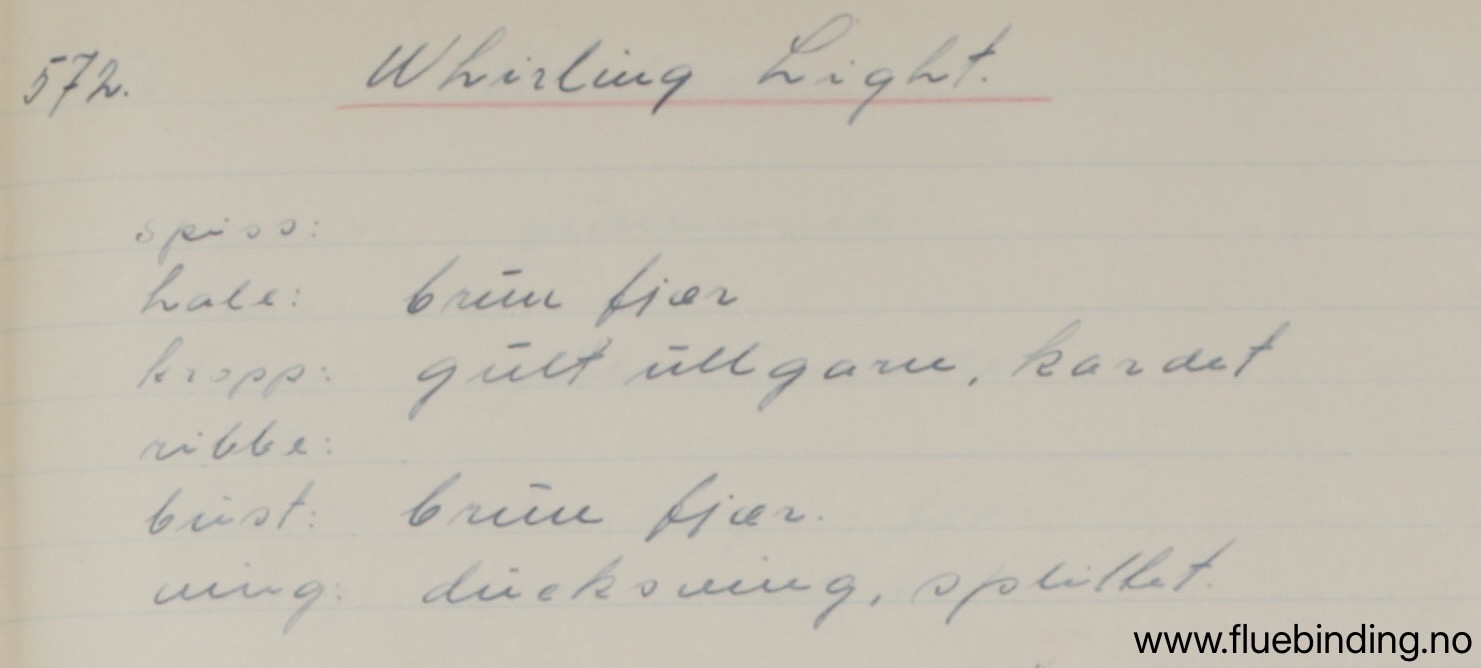 572. Whirling Light.
spiss:
hale: brun fjær
kropp: gult ullgarn, kardet
ribbe:
bust: brun fjær.
ving: ducksving, splittet.
www.fluebinding.no